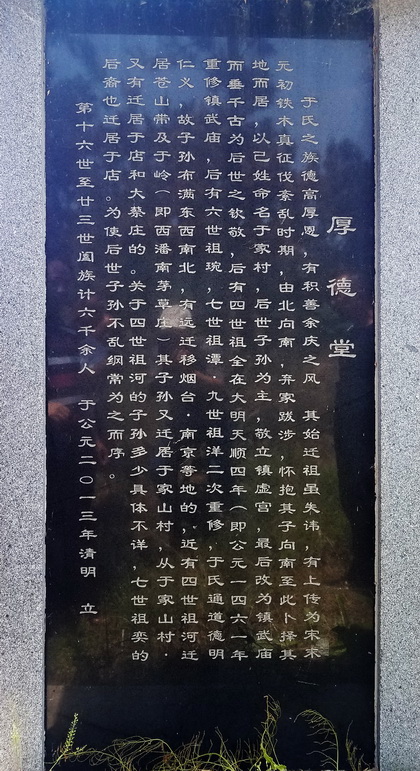 厚德堂
于氏之族德高厚恩，有积善余庆之风　其始迁祖虽失讳，有上传为宋末
元初铁木真征伐紊乱时期，由北向南，弃家跋涉，怀抱其子向南至此卜择其
地而居，以己姓命名于家村，后世子孙为主，敬立镇虚宫，最后改为镇武庙
而垂千古为后世之钦敬，后有四世祖全在大明天顺四年（即公元一四六一年
重修镇武庙，后有六世祖琬，七世祖潭·九世祖洋二次重修，于氏通道德明
仁义，故子孙布满东西南北，有远迁移烟台·南京等地的，近有四世祖河迁
居苍山带及于岭（即西潘南茅草庄）其子孙又迁居于家山村，从于家山村·
又有迁居于店和大蔡庄的。关于四世祖河的子孙多少具体不详，七世祖奕的
后裔也迁居于店。为使后世子孙不乱纲常为之而序。
第十六世至廿三世阖族计六千余人　于公元二〇一三年清明　立